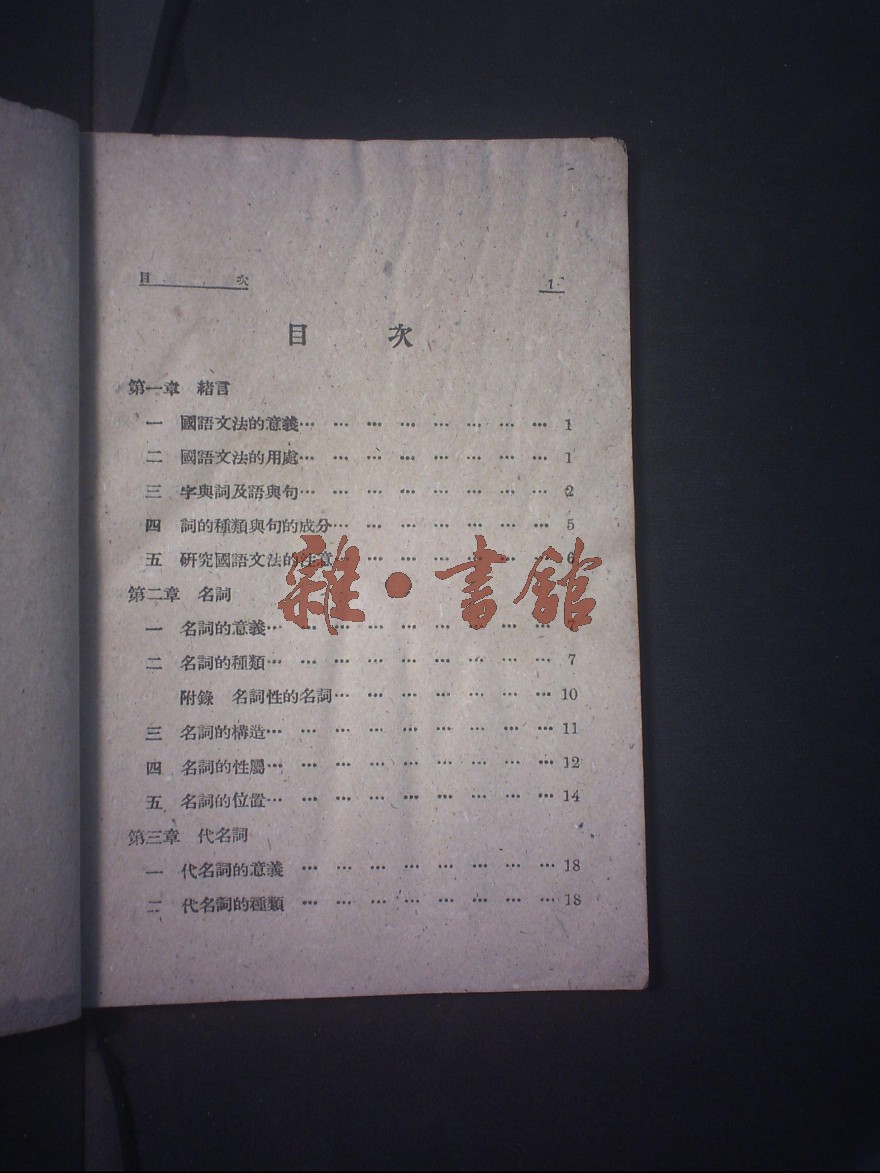 目　次　1
目　次
第一章　緒言
一　國語文法的意義… … … … … … … … 1
二　國語文法的用處… … … … … … … … 1
三　字與詞及語與句… … … … … … … … 2
四　詞的種類與句的成分… … … … … … … 5
五　研究國語文法的注意… … … … … … … 6
雜·書館
第二章　名詞
一　名詞的意義… … … … … … … … …
二　名詞的種類… … … … … … … … … 7
附錄　名詞性的名詞… … … … … … … 10
三　名詞的構造… … … … … … … … … 11
四　名詞的性屬… … … … … … … … … 12
五　名詞的位置… … … … … … … … … 14
第三章　代名詞
一　代名詞的意義　… … … … … … … … 18
二　代名詞的種類　… … … … … … … … 18